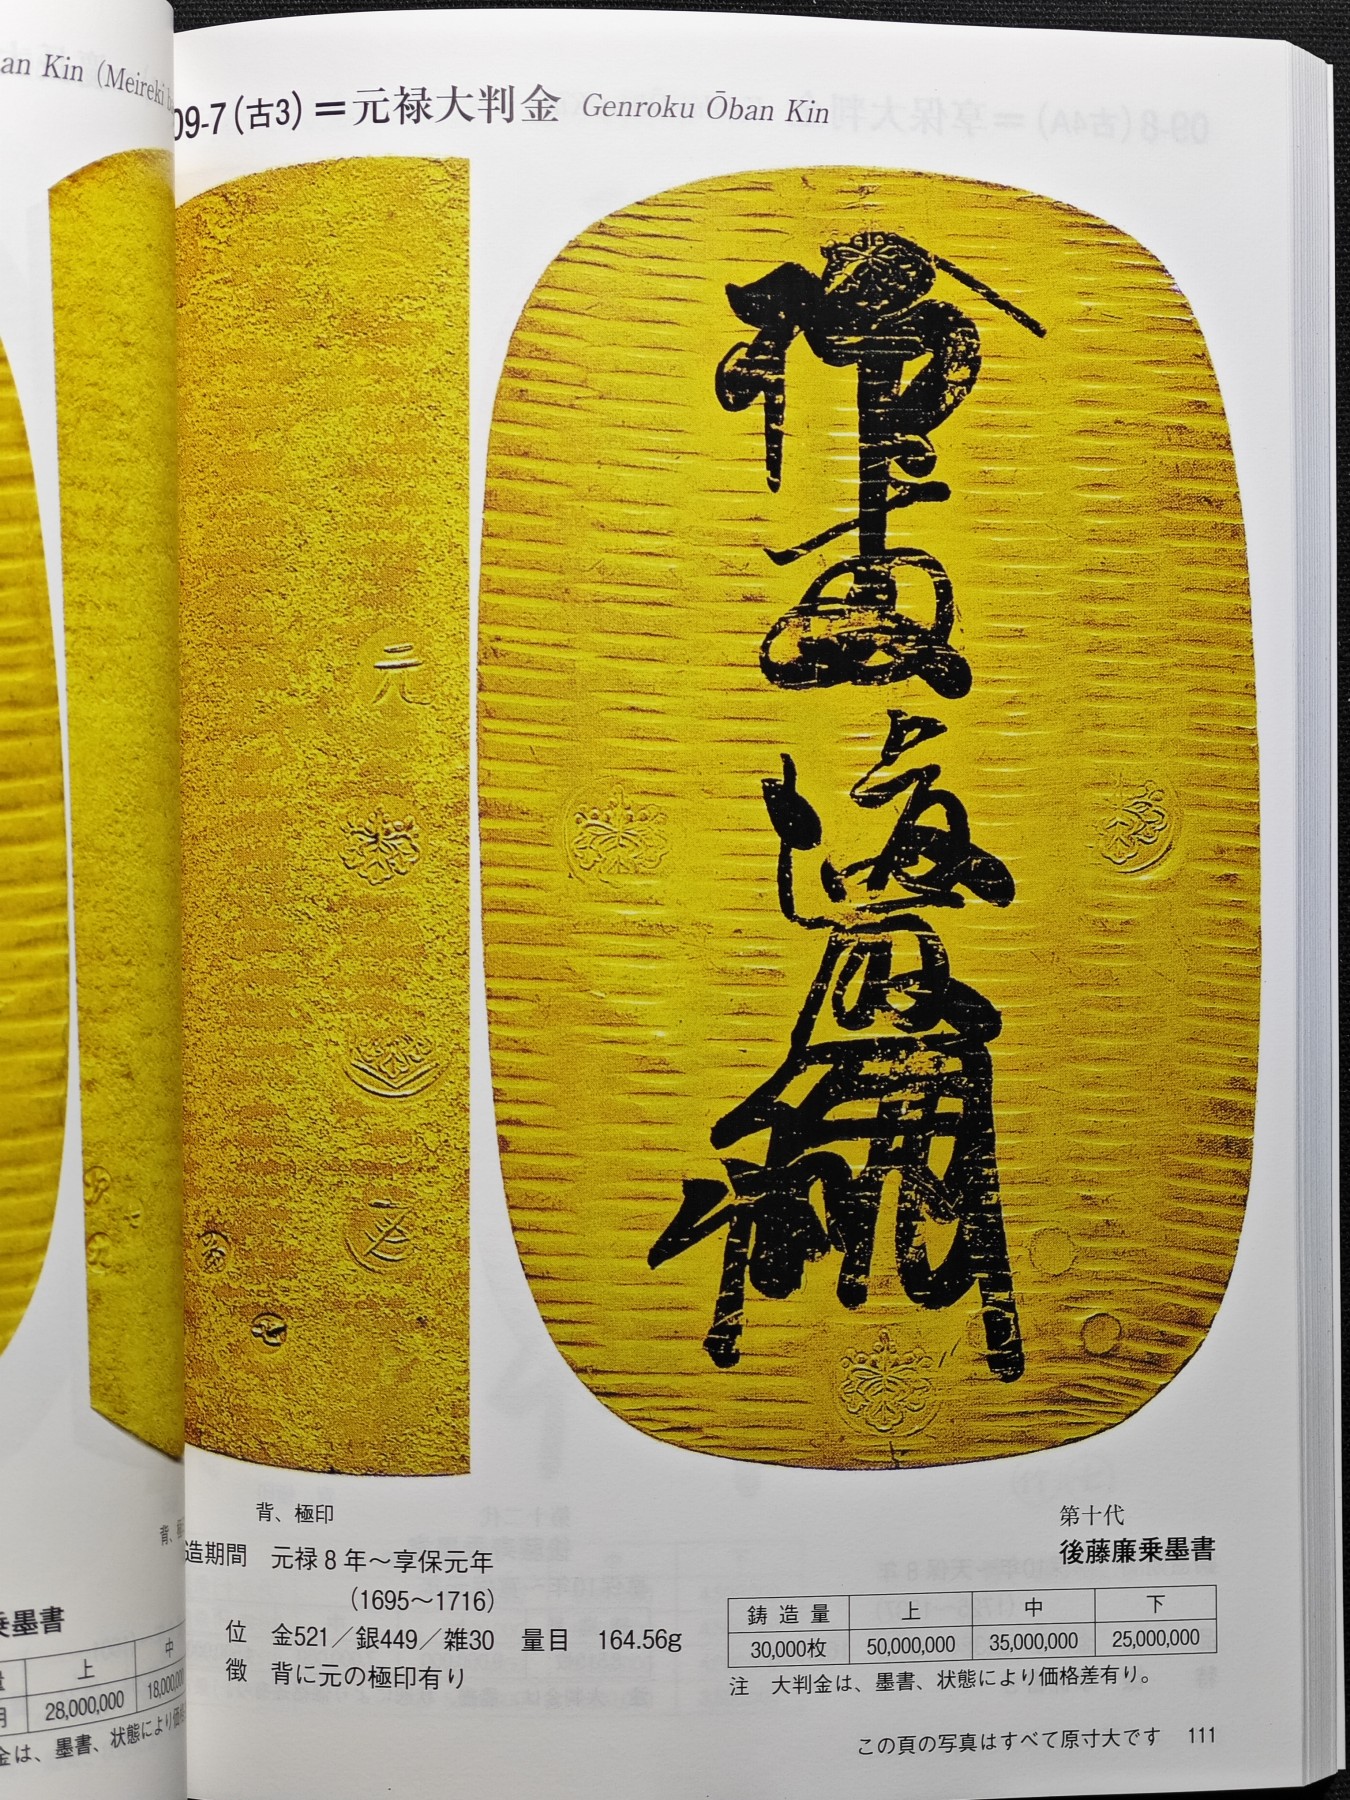 an Kin (Meireki
09-7(古3)=元禄大判金 Genroku Ōban Kin
元
背、極印
造期間 元禄8年~享保元年
(1695~1716)
位 金521/銀449/雑30 量目 164.56g
徴 背に元の極印有り
第十代
後藤廉乗墨書
鋳造量 上 中 下
30,000枚 50,000,000 35,000,000 25,000,000
注 大判金は、墨書、状態により価格差有り。
この頁の写真はすべて原寸大です 111
背、
乗墨書
量 上 中
月 28,000,000 18,000,000
金は、墨書、状態により価